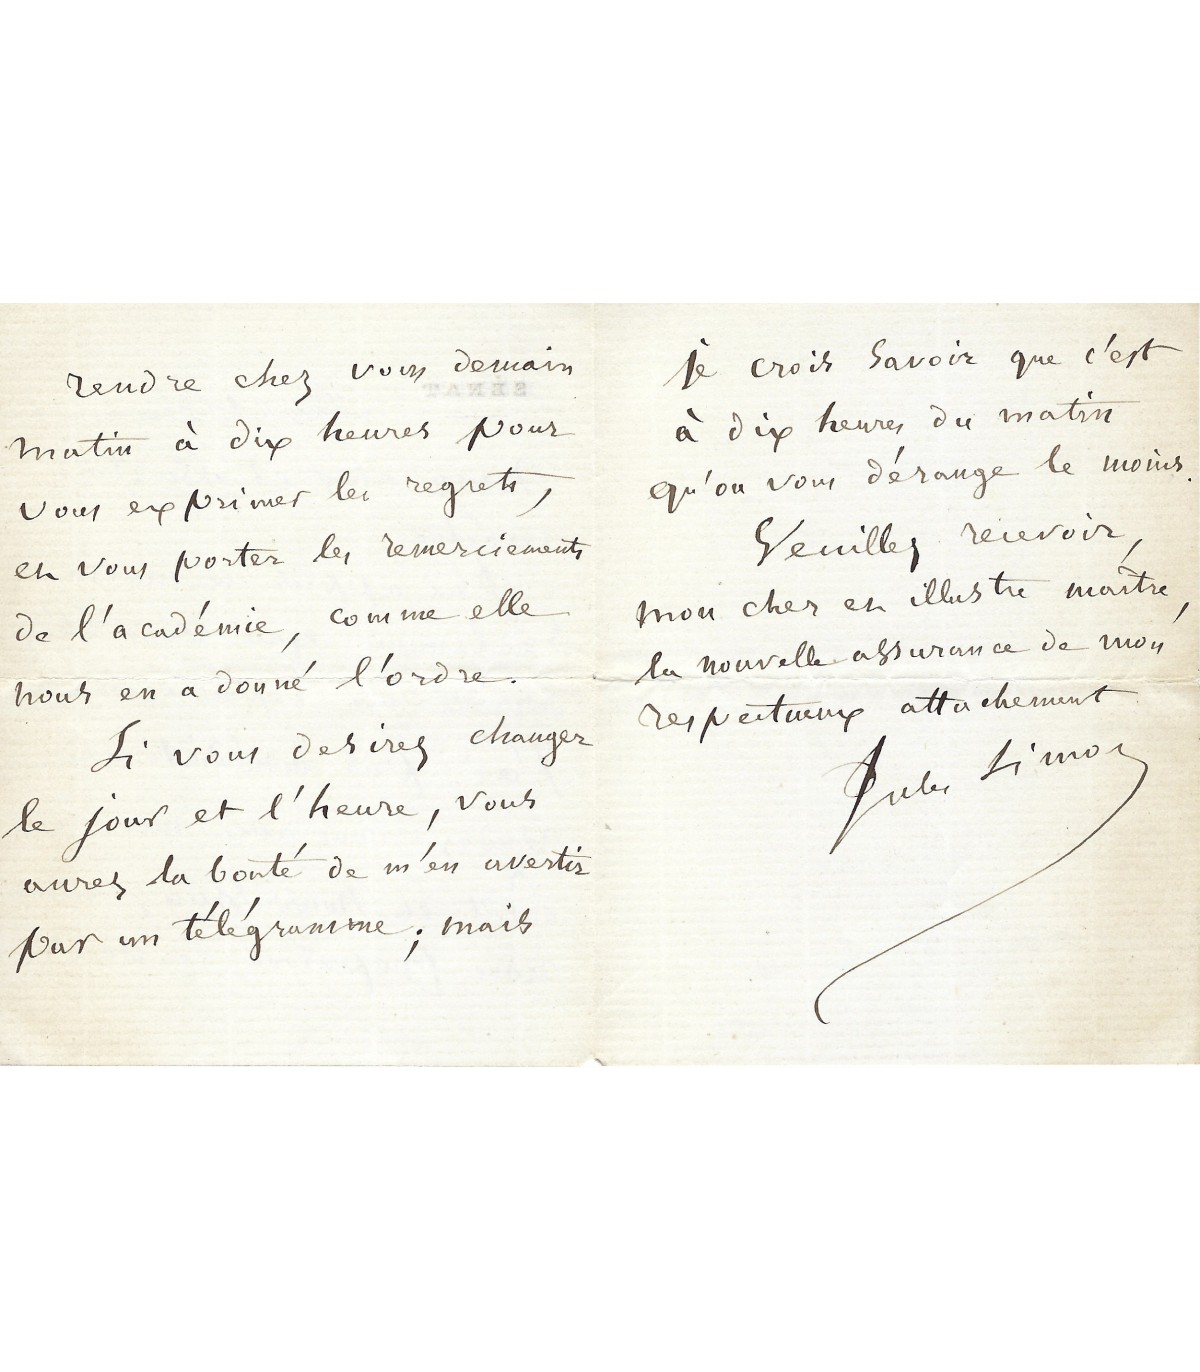 rendre chez vous demain
matin à dix heures pour
vous exprimer les regrets,
et vous porter les remerciements
de l'académie, comme elle
nous en a donné l'ordre.
Si vous desirez changer
le jour et l'heure, vous
aurez la bonté de m'en avertir
par un télégramme; mais
je crois savoir que c'est
à dix heures du matin
qu'on vous dérange le moins.
Veuillez recevoir,
mon cher et illustre maître,
la nouvelle assurance de mon
respectueux attachement
Jules Simon
SÉNAT